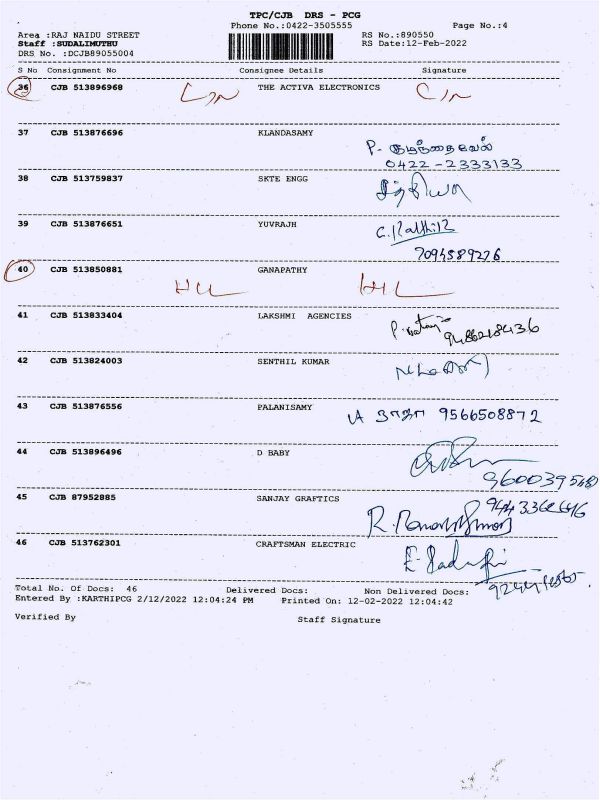 TPC/CJB DRS - PCG
Phone No.:0422-3505555 Page No.:4
Area :RAJ NAIDU STREET RS No.:890550
Staff :SUDALIMUTHU RS Date:12-Feb-2022
DRS No. :DCJB89055004
S No Consignment No Consignee Details Signature
36 CJB 513896968 THE ACTIVA ELECTRONICS
37 CJB 513876696 KLANDASAMY
P. குழந்தைவேல்
0422-2333133
38 CJB 513759837 SKTE ENGG
39 CJB 513876651 YUVRAJH
7094589226
40 CJB 513850881 GANAPATHY
41 CJB 513833404 LAKSHMI AGENCIES
42 CJB 513824003 SENTHIL KUMAR
43 CJB 513876556 PALANISAMY ராஜா 9566508872
44 CJB 513896496 D BABY
45 CJB 87952885 SANJAY GRAFTICS
46 CJB 513762301 CRAFTSMAN ELECTRIC
Total No. Of Docs: 46 Delivered Docs: Non Delivered Docs:
Entered By :KARTHIPCG 2/12/2022 12:04:24 PM Printed On: 12-02-2022 12:04:42
Verified By Staff Signature